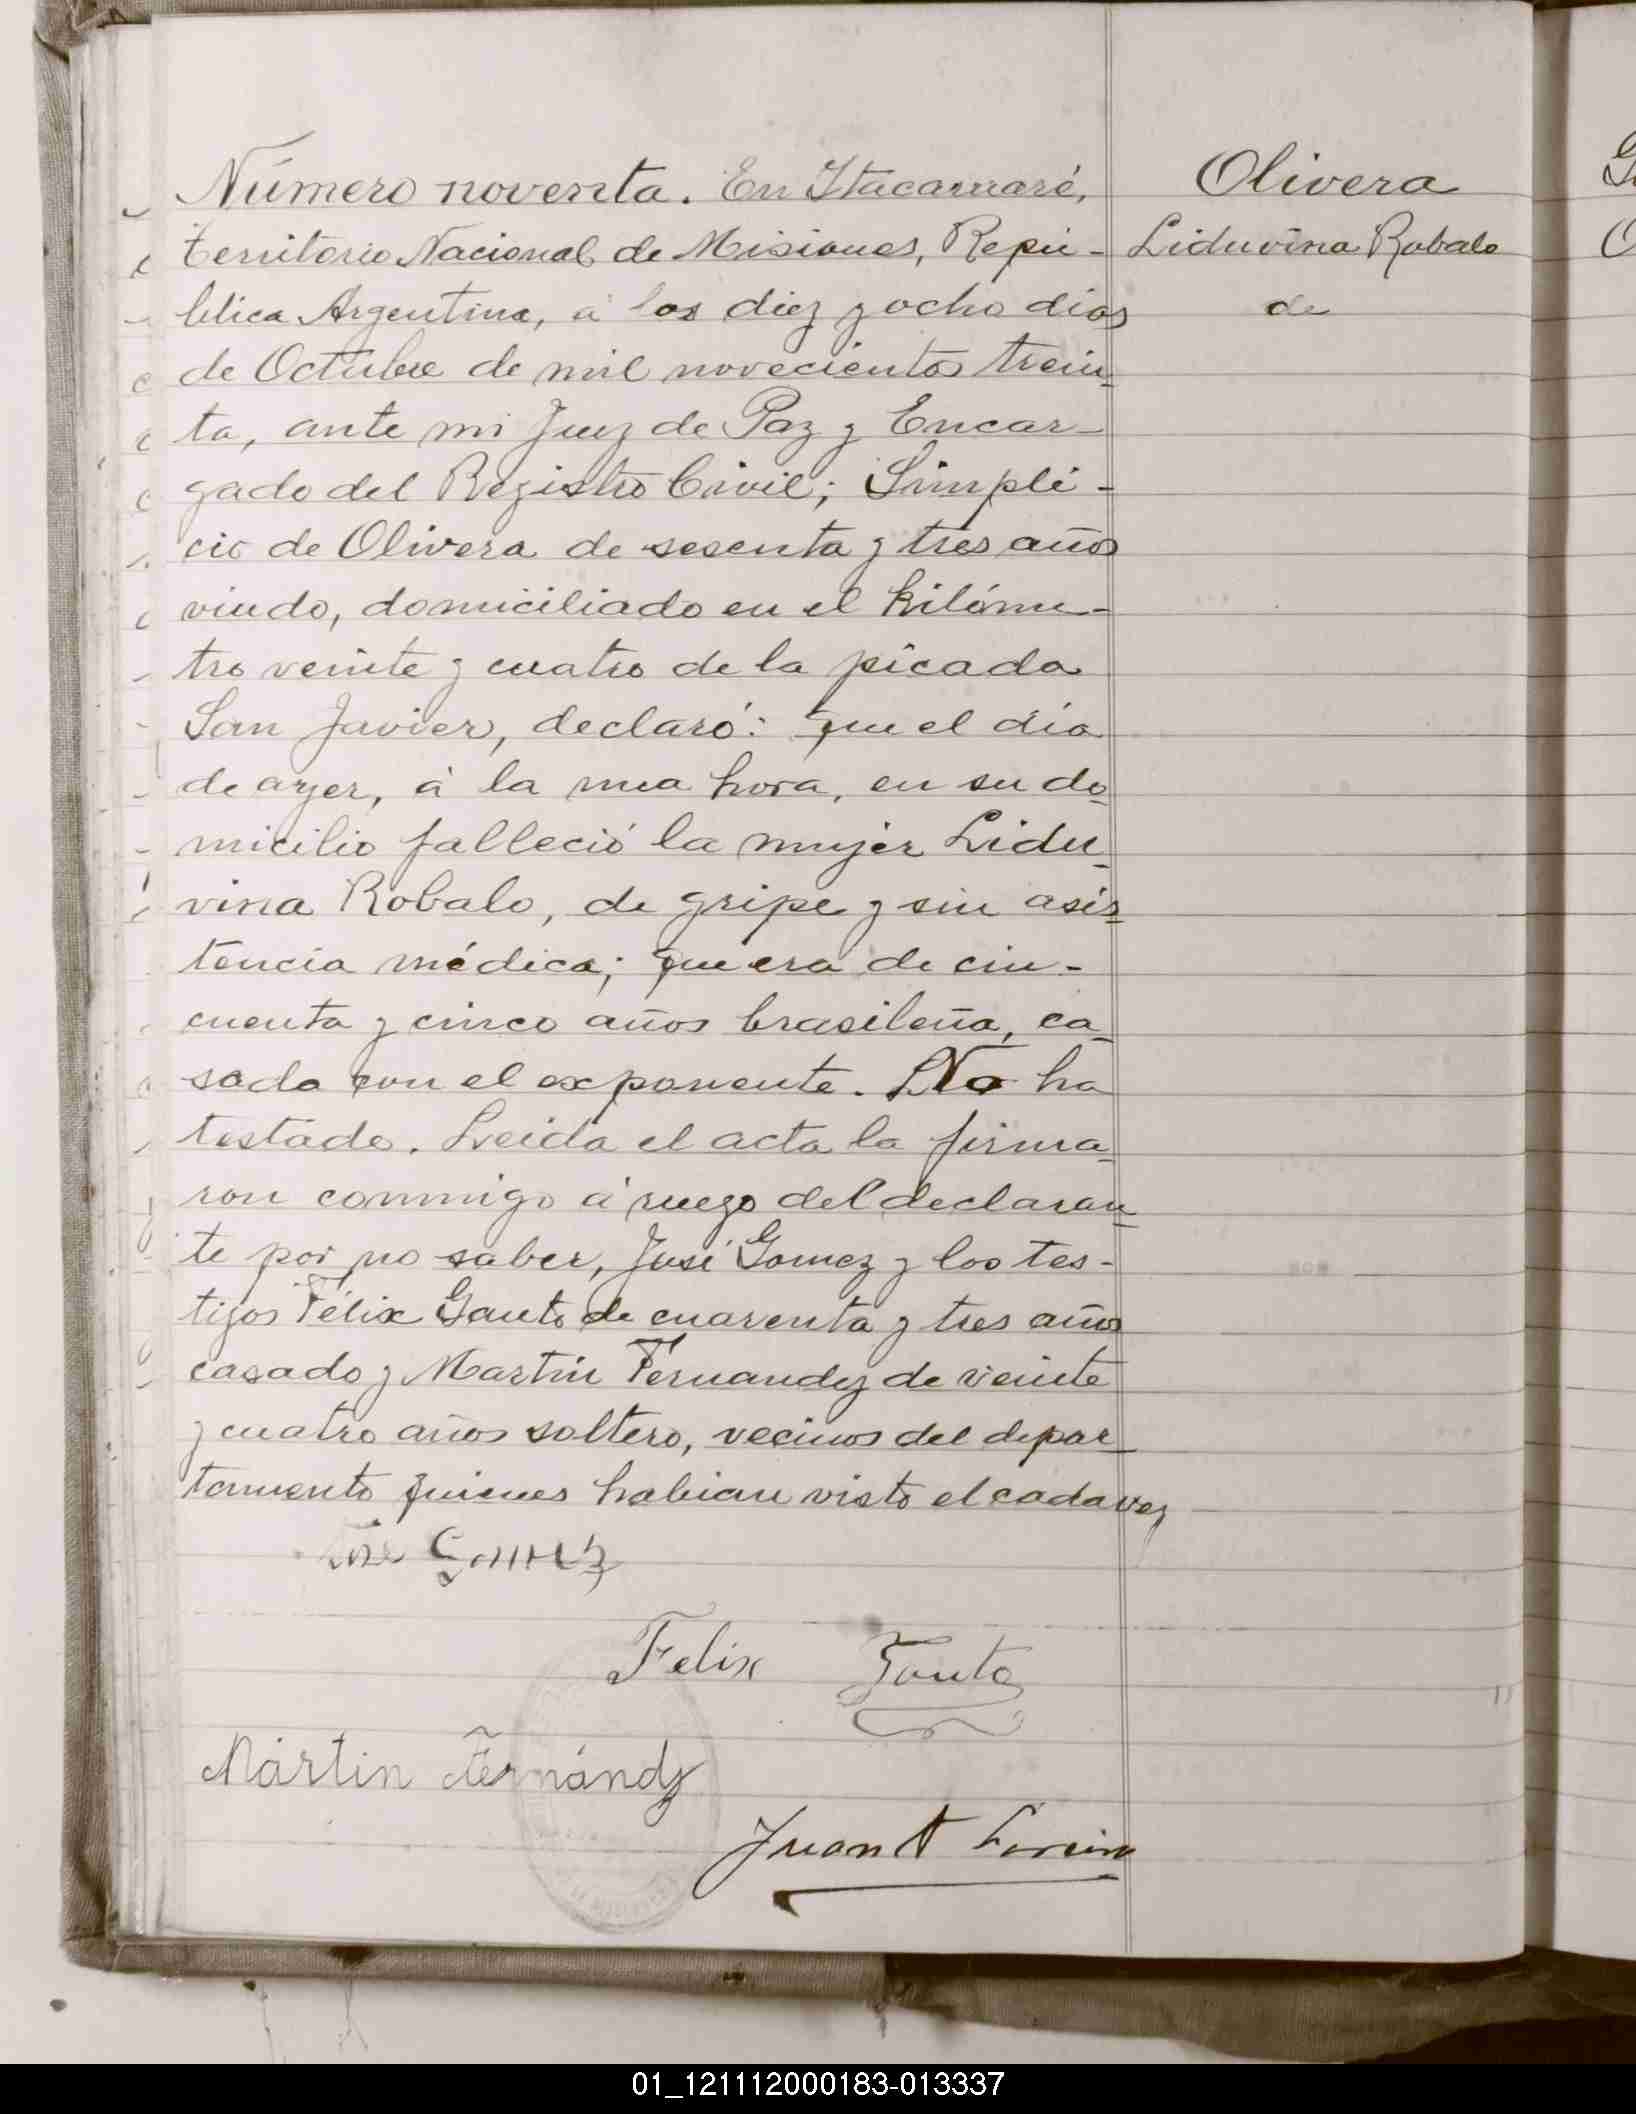 Número noventa. En Itacaruaré,
territorio Nacional de Misiones, Repú-
blica Argentina, á los diez y ocho dias
de Octubre de mil novecientos trein-
ta, ante mi Juez de Paz y Encar-
gado del Registro Civil; Simpli-
cio de Olivera de sesenta y tres años
viudo, domiciliado en el kilóme-
tro veinte y cuatro de la picada
San Javier, declaró: que el día
de ayer, á la una hora, en su do-
micilio falleció la mujer Lidu-
vina Robalo, de gripe y sin asis-
tencia médica; que era de cin-
cuenta y cinco años brasileña, ca-
sada con el exponente. No ha
testado. Leida el acta la firma-
ron conmigo á ruego del declaran-
te por no saber, José Gomez y los tes-
tijos Félix Gauto de cuarenta y tres años
casado y Martin Fernandez de veinte
y cuatro años soltero, vecinos del depar-
tamento quienes habian visto el cadaver
José Gomez
Felix Gauto
Martin Fernández
Juan A
Olivera
Liduvina Robalo
de
01_121112000183-013337